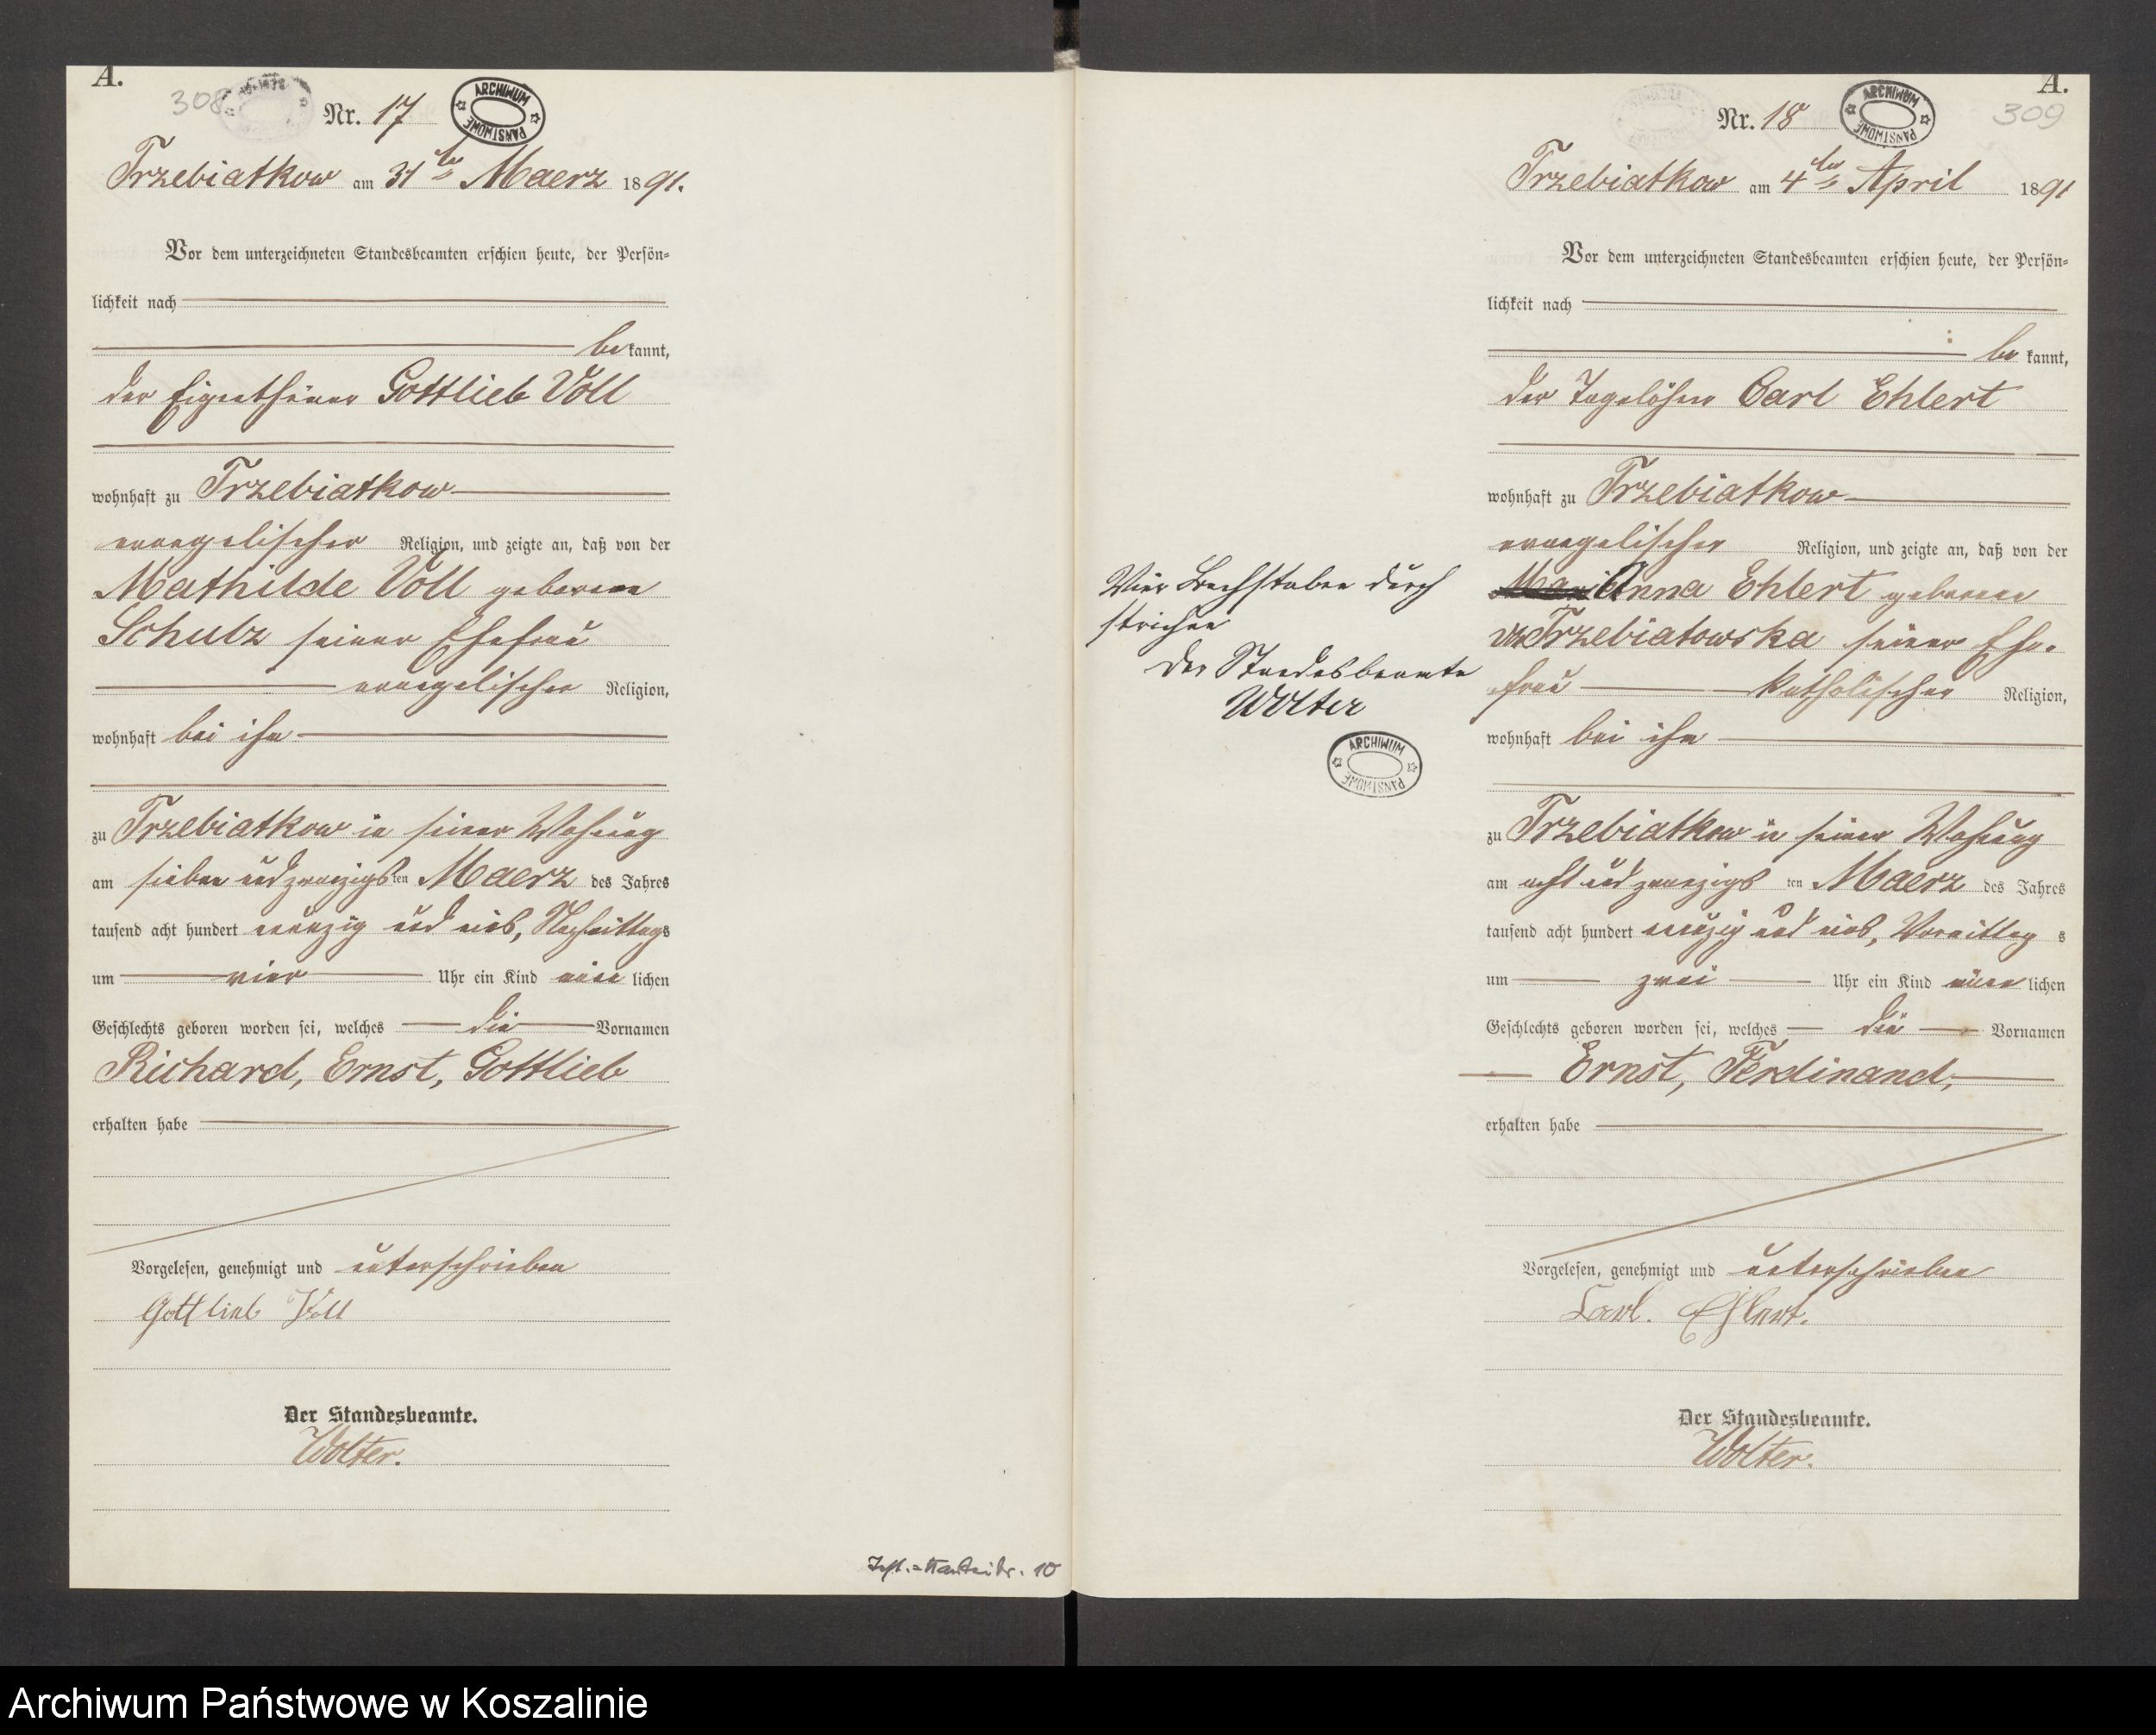 A.
308
Nr. 17
ARCHIWUM PAŃSTWOWE
Trzebiatkow am 31ten Maerz 1891.
Vor dem unterzeichneten Standesbeamten erschien heute, der Persön-
lichkeit nach
bekannt,
der Eigenthümer Gottlieb Voll
wohnhaft zu Trzebiatkow
evangelischer Religion, und zeigte an, daß von der
Mathilde Voll geborene
Schulz seiner Ehefrau
evangelischer Religion,
wohnhaft bei ihm
zu Trzebiatkow in seiner Wohnung
am sieben und zwanzigsten Maerz des Jahres
tausend acht hundert neunzig und eins, Nachmittags
um vier Uhr ein Kind männlichen
Geschlechts geboren worden sei, welches die Vornamen
Richard, Ernst, Gottlieb
erhalten habe
Vorgelesen, genehmigt und unterschrieben
Gottlieb Voll
Der Standesbeamte.
Wolter.
10
A.
309
Nr. 18
ARCHIWUM PAŃSTWOWE
Trzebiatkow am 4ten April 1891
Vor dem unterzeichneten Standesbeamten erschien heute, der Persön-
lichkeit nach
bekannt,
der Tagelöhner Carl Ehlert
wohnhaft zu Trzebiatkow
evangelischer Religion, und zeigte an, daß von der
Anna Ehlert geborene
Trzebiatowska seiner Ehe-
frau katholischer Religion,
wohnhaft bei ihm
zu Trzebiatkow in seiner Wohnung
am acht und zwanzigsten Maerz des Jahres
tausend acht hundert neunzig und eins, Vormittags
um zwei Uhr ein Kind männlichen
Geschlechts geboren worden sei, welches die Vornamen
Ernst, Ferdinand,
erhalten habe
Vorgelesen, genehmigt und unterschrieben
Carl. Ehlert.
Der Standesbeamte.
Wolter.
Vier Buchstaben durch
strichen
Der Standesbeamte
Wolter
ARCHIWUM PAŃSTWOWE
Archiwum Państwowe w Koszalinie